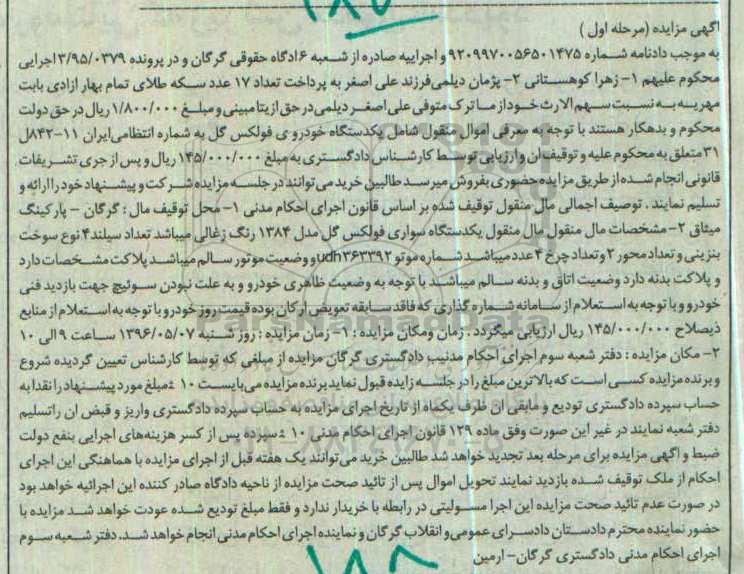 آگهی مزایده (مرحله اول)
به موجب دادنامه شماره ۹۲۰۹۹۷۰۰۵۶۵۰۱۴۷۵ و اجراییه صادره از شعبه ۶ ادگاه حقوقی گرگان و در پرونده ۳/۹۵/۰۳۷۹ اجرایی
محکوم علیهم ۱- زهرا کوهستانی ۲- پژمان دیلمی فرزند علی اصغر به پرداخت تعداد ۱۷ عدد سکه طلای تمام بهار ازادی بابت
مهریه به نسبت سهم الارث خود از ما ترک متوفی علی اصغر دیلمی در حق ازیتا مبینی و مبلغ ۱/۸۰۰/۰۰۰ ریال در حق دولت
محکوم و بدهکار هستند با توجه به معرفی اموال منقول شامل یکدستگاه خودروی فولکس گل به شماره انتظامی ایران ۱۱-۸۴۲ل
۳۱ متعلق به محکوم علیه و توقیف ان و ارزیابی توسط کارشناس دادگستری به مبلغ ۱۴۵/۰۰۰/۰۰۰ ریال و پس از جری تشریفات
قانونی انجام شده از طریق مزایده حضوری بفروش میرسد طالبین خرید می توانند در جلسه مزایده شرکت و پیشنهاد خود را ارائه و
تسلیم نمایند . توصیف اجمالی مال منقول توقیف شده بر اساس قانون اجرای احکام مدنی ۱- محل توقیف مال : گرگان - پارکینگ
میثاق ۲- مشخصات مال منقول مال منقول یکدستگاه سواری فولکس گل مدل ۱۳۸۴ رنگ زغالی میباشد تعداد سیلند ۴ نوع سوخت
بنزینی و تعداد محور ۲ و تعداد چرخ ۴ عدد میباشد شماره موتو udh۳۶۳۳۹۲ و وضعیت موتور سالم میباشد پلاکت مشخصات دارد
و پلاکت بدنه دارد وضعیت اتاق و بدنه سالم میباشد با توجه به وضعیت ظاهری خودرو و به علت نبودن سوئیچ جهت بازدید فنی
خودرو و با توجه به استعلام از سامانه شماره گذاری که فاقد سابقه تعویض ارکان بوده قیمت روز خودرو با توجه به استعلام از منابع
ذیصلاح ۱۴۵/۰۰۰/۰۰۰ ریال ارزیابی میگردد . زمان ومکان مزایده : ۱- زمان مزایده : روز شنبه ۱۳۹۶/۰۵/۰۷ ساعت ۹ الی ۱۰
۲- مکان مزایده : دفتر شعبه سوم اجرای احکام مدنیب دادگستری گرگان مزایده از مبلغی که توسط کارشناس تعیین گردیده شروع
و برنده مزایده کسی است که بالاترین مبلغ را در جلسه زایده قبول نماید برنده مزایده می بایست ۱۰ ٪ مبلغ مورد پیشنهاد را نقدا به
حساب سپرده دادگستری تودیع و مابقی ان ظرف یکماه از تاریخ اجرای مزایده به حساب سپرده دادگستری واریز و قبض ان راتسلیم
دفتر شعبه نمایند در غیر این صورت وفق ماده ۱۲۹ قانون اجرای احکام مدنی ۱۰ ٪ سپرده پس از کسر هزینه های اجرایی بنفع دولت
ضبط و اگهی مزایده برای مرحله بعد تجدید خواهد شد طالبین خرید می توانند یک هفته قبل از اجرای مزایده با هماهنگی این اجرای
احکام از ملک توقیف شده بازدید نمایند تحویل اموال پس از تائید صحت مزایده از ناحیه دادگاه صادر کننده این اجرائیه خواهد بود
در صورت عدم تائید صحت مزایده این اجرا مسولیتی در رابطه با خریدار ندارد و فقط مبلغ تودیع شده عودت خواهد شد مزایده با
حضور نماینده محترم دادستان دادسرای عمومی و انقلاب گرگان و نماینده اجرای احکام مدنی انجام خواهد شد. دفتر شعبه سوم
اجرای احکام مدنی دادگستری گرگان- ارمین